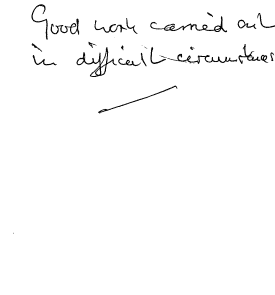 Good work carried out
in difficult circumstances